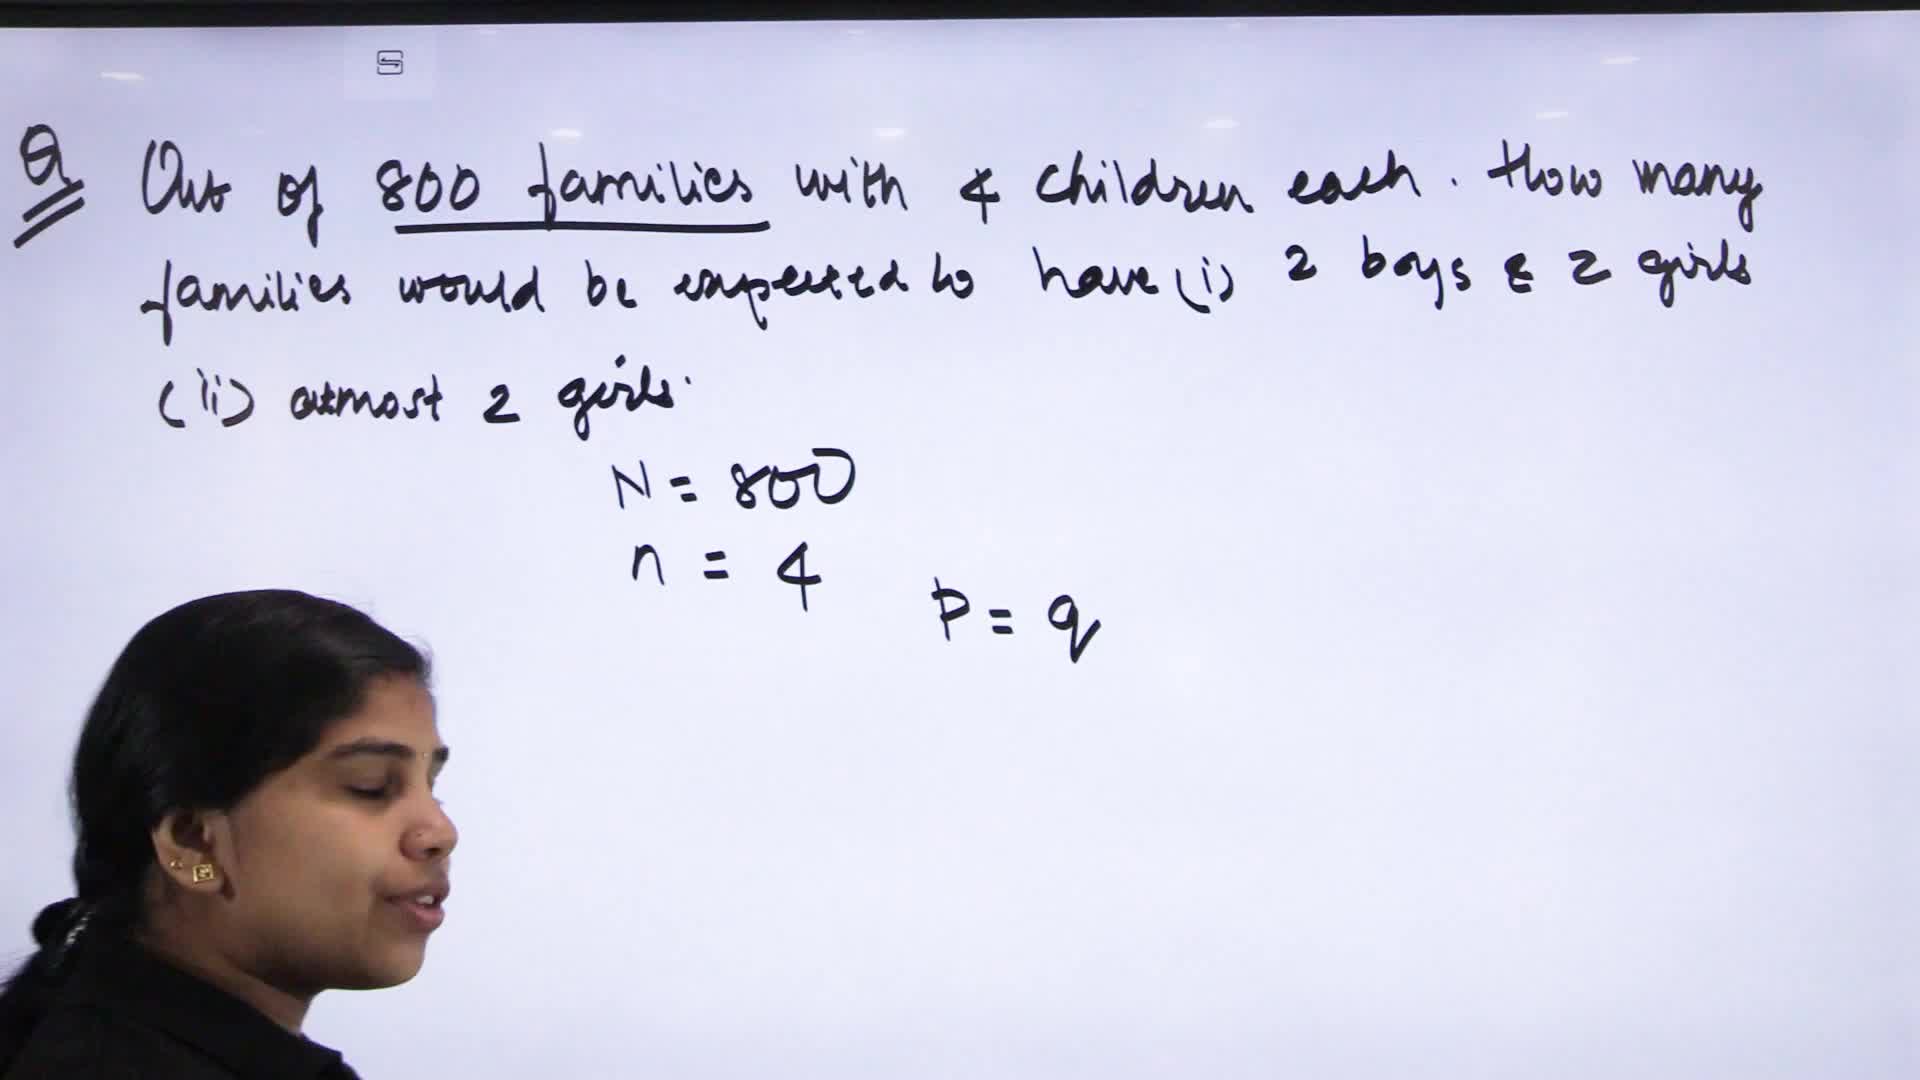 Q Out of 800 families with 4 children each. How many
families would be expected to have (i) 2 boys & 2 girls
(ii) atmost 2 girls.
N = 800
n = 4
P = q